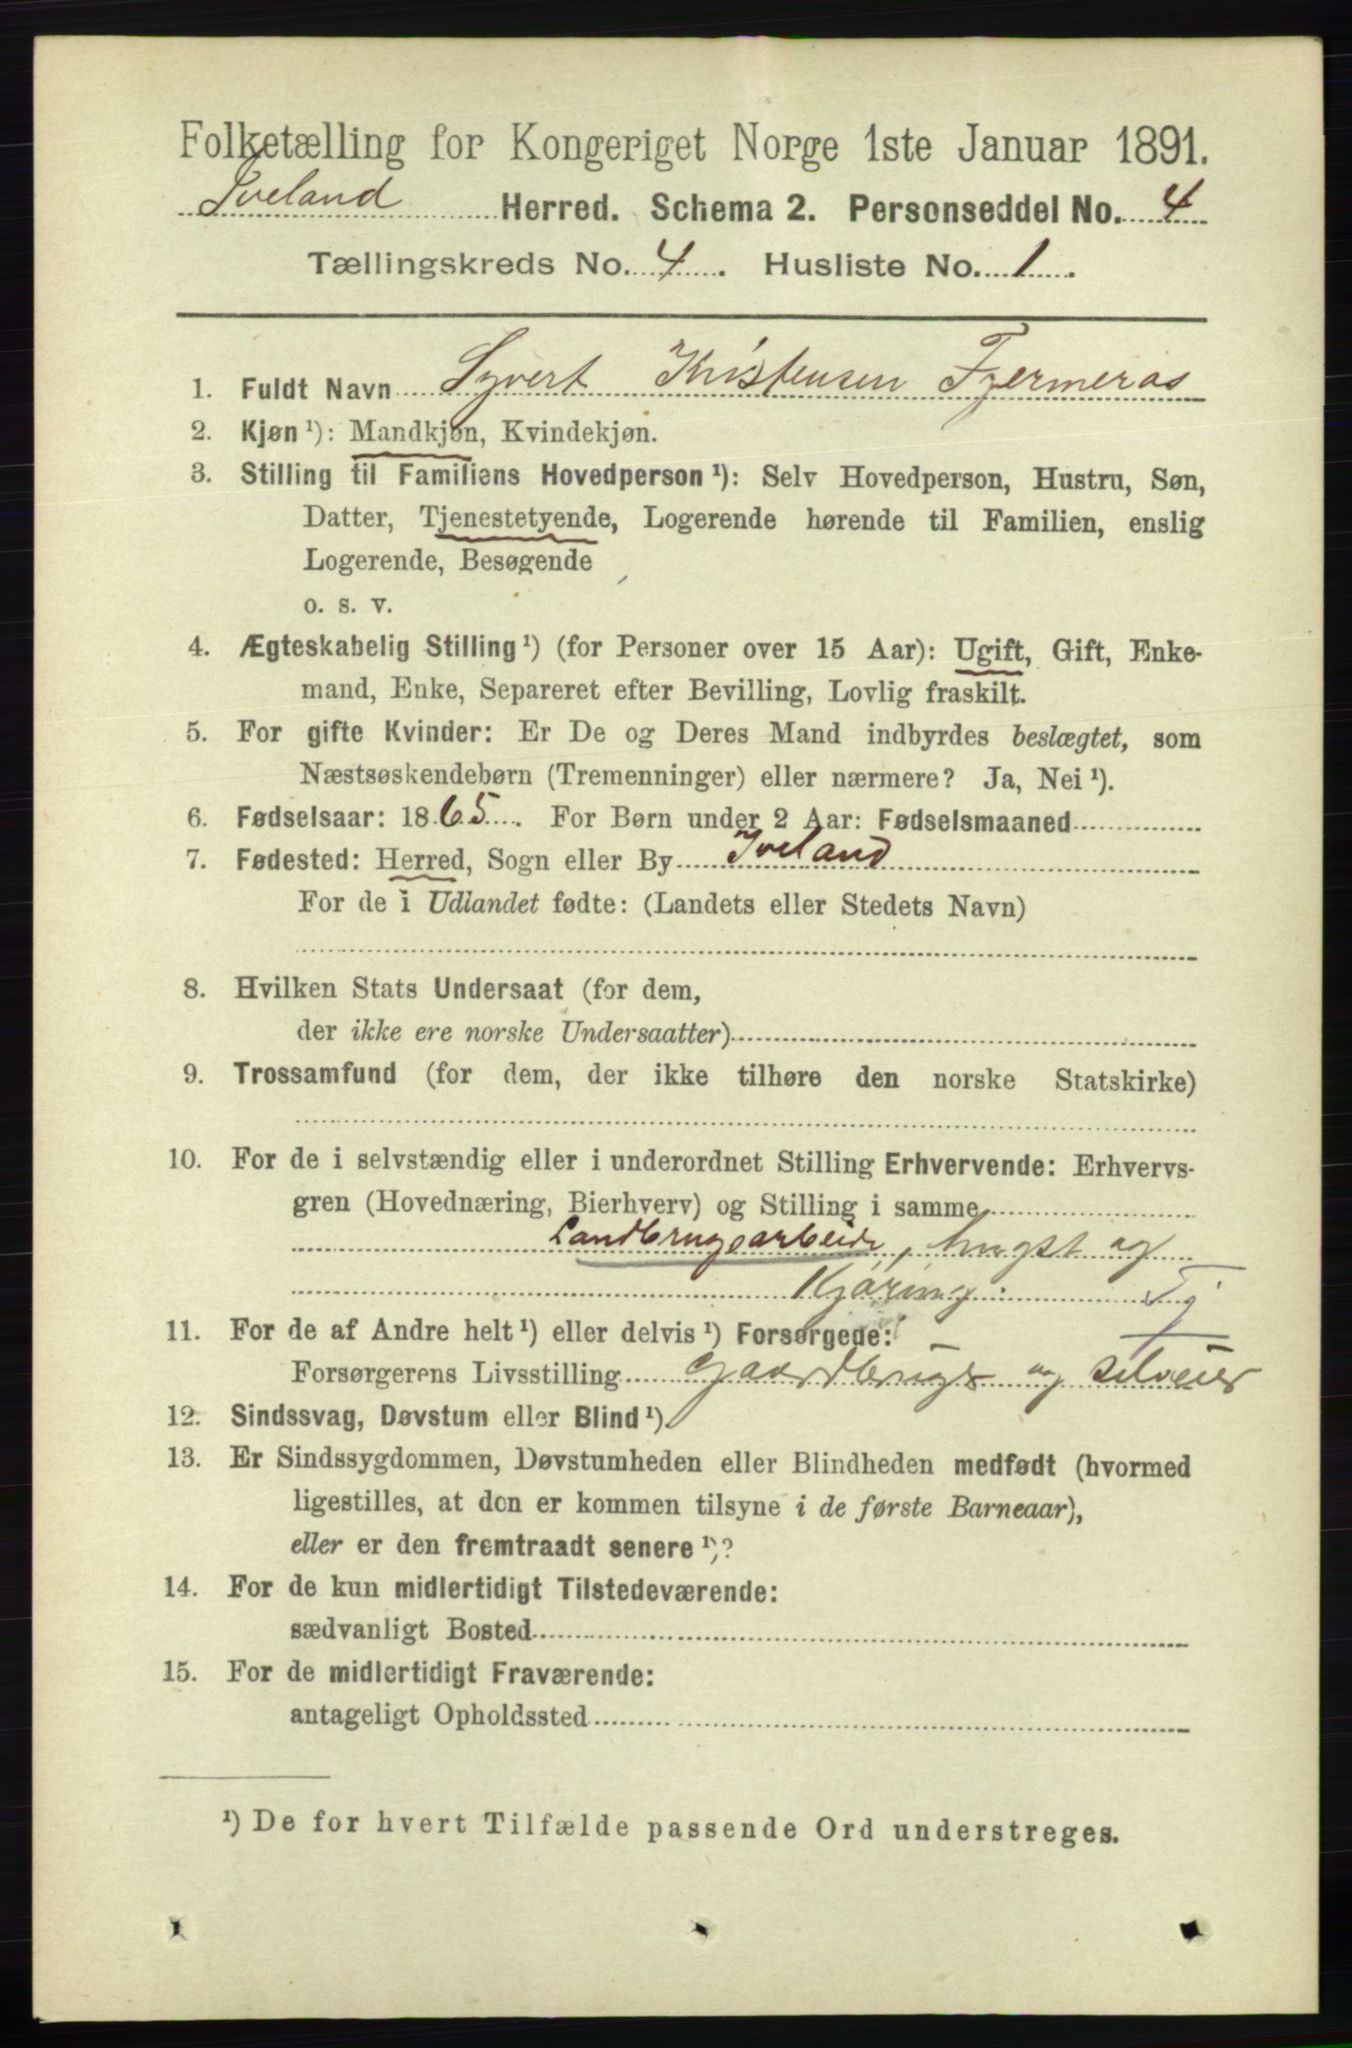 Folketælling for Kongeriget Norge 1ste Januar 1891.
Iveland Herred. Schema 2. Personseddel No. 4
Tællingskreds No. 4. Husliste No. 1.
1. Fuldt Navn Syvert Kristensen Fjermeros
2. Kjøn ¹): Mandkjøn, Kvindekjøn.
3. Stilling til Familiens Hovedperson ¹): Selv Hovedperson, Hustru, Søn,
Datter, Tjenestetyende, Logerende hørende til Familien, enslig
Logerende, Besøgende
o. s. v.
4. Ægteskabelig Stilling ¹) (for Personer over 15 Aar): Ugift, Gift, Enke-
mand, Enke, Separeret efter Bevilling, Lovlig fraskilt.
5. For gifte Kvinder: Er De og Deres Mand indbyrdes beslægtet, som
Næstsøskendebørn (Tremenninger) eller nærmere? Ja, Nei ¹).
6. Fødselsaar: 1865. For Børn under 2 Aar: Fødselsmaaned
7. Fødested: Herred, Sogn eller By Iveland
For de i Udlandet fødte: (Landets eller Stedets Navn)
8. Hvilken Stats Undersaat (for dem,
der ikke ere norske Undersaatter)
9. Trossamfund (for dem, der ikke tilhøre den norske Statskirke)
10. For de i selvstændig eller i underordnet Stilling Erhvervende: Erhvervs-
gren (Hovednæring, Bierhverv) og Stilling i samme
Landbrugsarbeide, hugst og
Kjøring. Tj
11. For de af Andre helt ¹) eller delvis ¹) Forsørgede:
Forsørgerens Livsstilling Gaardbruger og selveier
12. Sindssvag, Døvstum eller Blind ¹).
13. Er Sindssygdommen, Døvstumheden eller Blindheden medfødt (hvormed
ligestilles, at den er kommen tilsyne i de første Barneaar),
eller er den fremtraadt senere ¹)?
14. For de kun midlertidigt Tilstedeværende:
sædvanligt Bosted
15. For de midlertidigt Fraværende:
antageligt Opholdssted
¹) De for hvert Tilfælde passende Ord understreges.